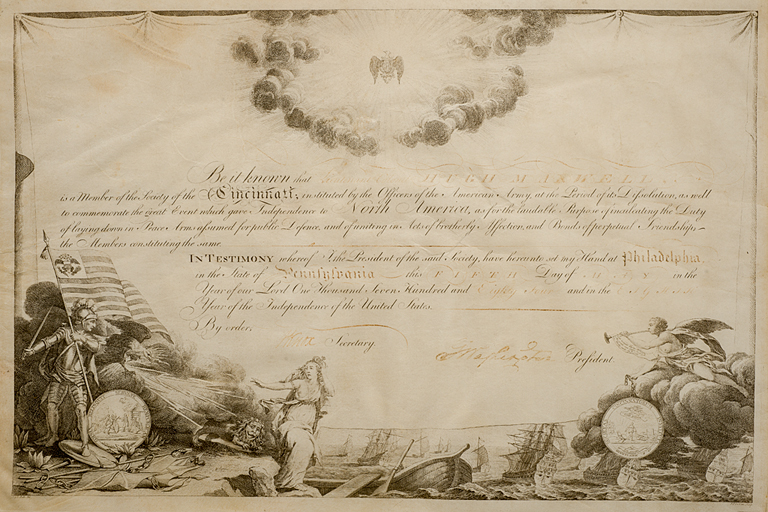 Be it known that HUGH MAXWELL
is a Member of the Society of the Cincinnati; instituted by the Officers of the American Army, at the Period of its Dissolution, as well
to commemorate the great Event which gave Independence to North America, as for the laudable Purpose of inculcating the Duty
of laying down in Peace Arms assumed for public Defence, and of uniting in Acts of brotherly Affection, and Bonds of perpetual Friendship,
the Members constituting the same.
IN TESTIMONY whereof I, the President of the said Society, have hereunto set my Hand at Philadelphia
in the State of Pennsylvania this FIFTH Day of MAY in the
Year of our Lord One Thousand Seven Hundred and Eighty and in the
Year of the Independence of the United States.
By order,
Secretary.
G Washington President.